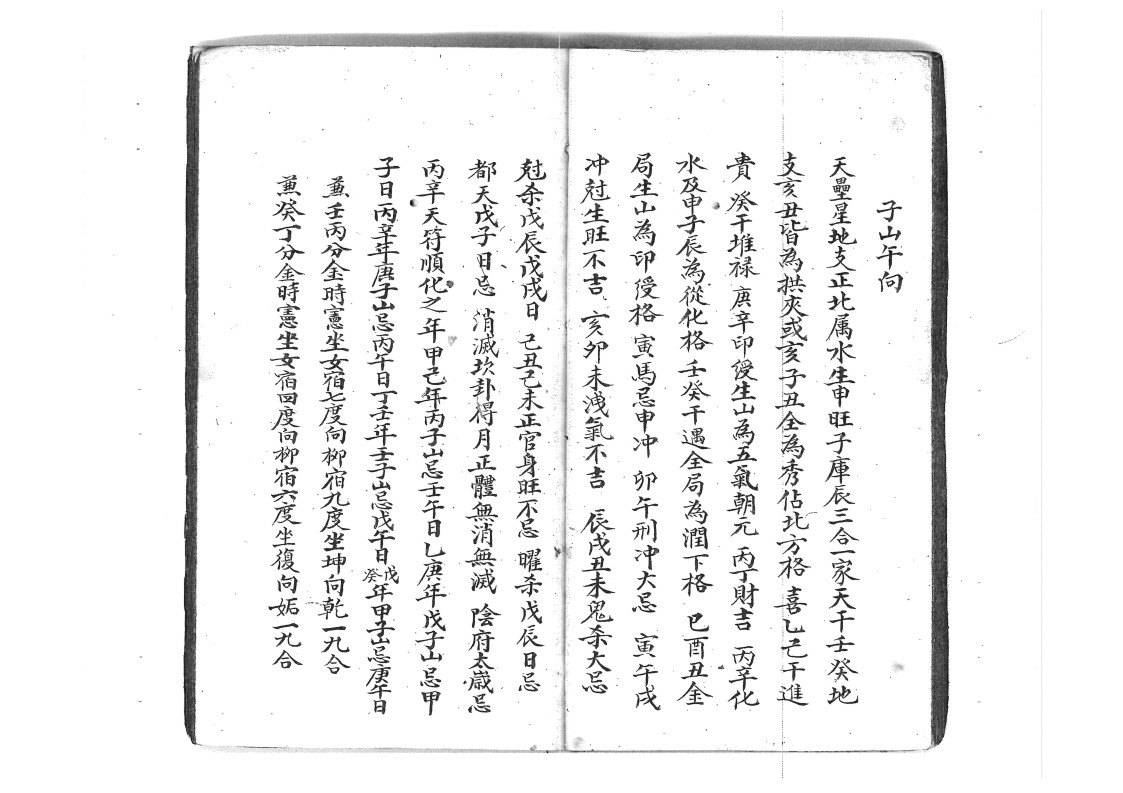 子山午向
天壘星地支正北属水生申旺子庫辰三合一家天干壬癸地
支亥丑皆為拱夾或亥子丑全為秀佔北方格 喜乙己干進
貴 癸干堆禄 庚辛印綬生山為五氣朝元 丙丁財吉 丙辛化
水及申子辰為從化格 壬癸干遇全局為潤下格 巳酉丑金
局生山為印綬格 寅馬忌申冲 卯午刑冲大忌 寅午戌
冲尅生旺不吉 亥卯未洩氣不吉 辰戌丑未鬼杀大忌
尅杀戊辰戊戌日 己丑己未正官身旺不忌 曜杀戊辰日忌
都天戊子日忌 消滅坎卦得月正體無消無滅 陰府太歲忌
丙辛天符順化之年甲己年丙子山忌壬午日乙庚年戊子山忌甲
子日丙辛年庚子山忌丙午日丁壬年壬子山忌戊午日戊癸年甲子山忌庚午日
蕪壬丙分金時憲坐女宿七度向柳宿九度坐坤向乾一九合
蕪癸丁分金時憲坐女宿四度向柳宿六度坐復向姤一九合